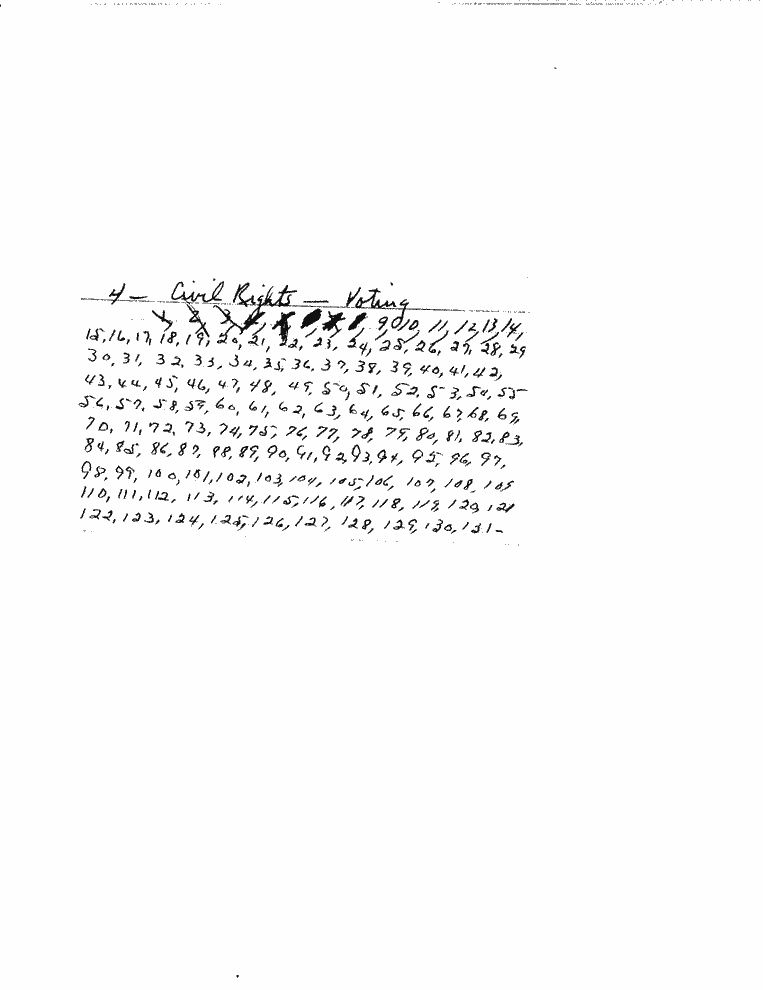 4 — Civil Rights — Voting
1, 2, 3, 4, 9, 10, 11, 12, 13, 14,
15, 16, 17, 18, 19, 20, 21, 22, 23, 24, 25, 26, 27, 28, 29
30, 31, 32, 33, 34, 35, 36, 37, 38, 39, 40, 41, 42,
43, 44, 45, 46, 47, 48, 49, 50, 51, 52, 53, 54, 55
56, 57, 58, 59, 60, 61, 62, 63, 64, 65, 66, 67, 68, 69,
70, 71, 72, 73, 74, 75, 76, 77, 78, 79, 80, 81, 82, 83,
84, 85, 86, 87, 88, 89, 90, 91, 92, 93, 94, 95, 96, 97,
98, 99, 100, 101, 102, 103, 104, 105, 106, 107, 108, 109
110, 111, 112, 113, 114, 115, 116, 117, 118, 119, 120, 121
122, 123, 124, 125, 126, 127, 128, 129, 130, 131-